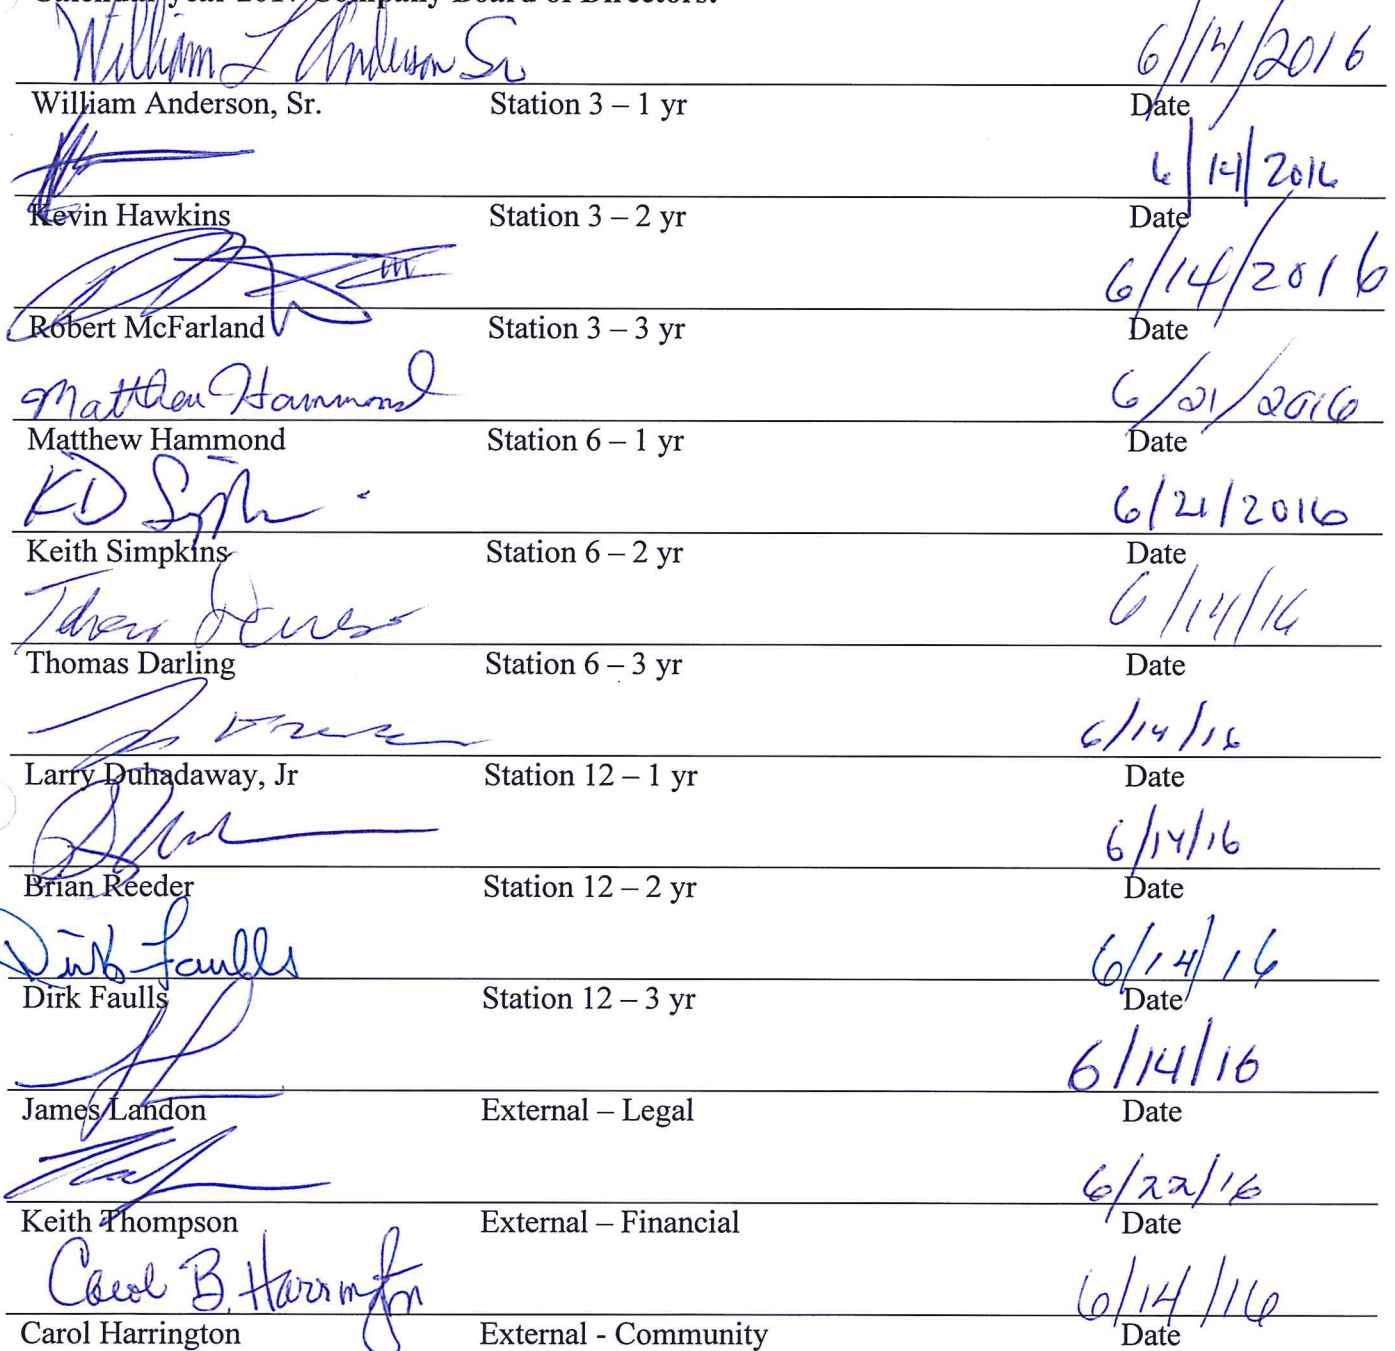 Calendar year 2017 Company Board of Directors:
William L Anderson Sr 6/14/2016
William Anderson, Sr. Station 3 – 1 yr Date
6/14/2016
Kevin Hawkins Station 3 – 2 yr Date
III 6/14/2016
Robert McFarland Station 3 – 3 yr Date
Matthew Hammond 6/21/2016
Matthew Hammond Station 6 – 1 yr Date
KD 6/21/2016
Keith Simpkins Station 6 – 2 yr Date
6/14/16
Thomas Darling Station 6 – 3 yr Date
6/14/16
Larry Duhadaway, Jr Station 12 – 1 yr Date
6/14/16
Brian Reeder Station 12 – 2 yr Date
Dirk Faulls 6/14/16
Dirk Faulls Station 12 – 3 yr Date
6/14/16
James Landon External – Legal Date
6/22/16
Keith Thompson External – Financial Date
Carol B. Harrington 6/14/16
Carol Harrington External - Community Date